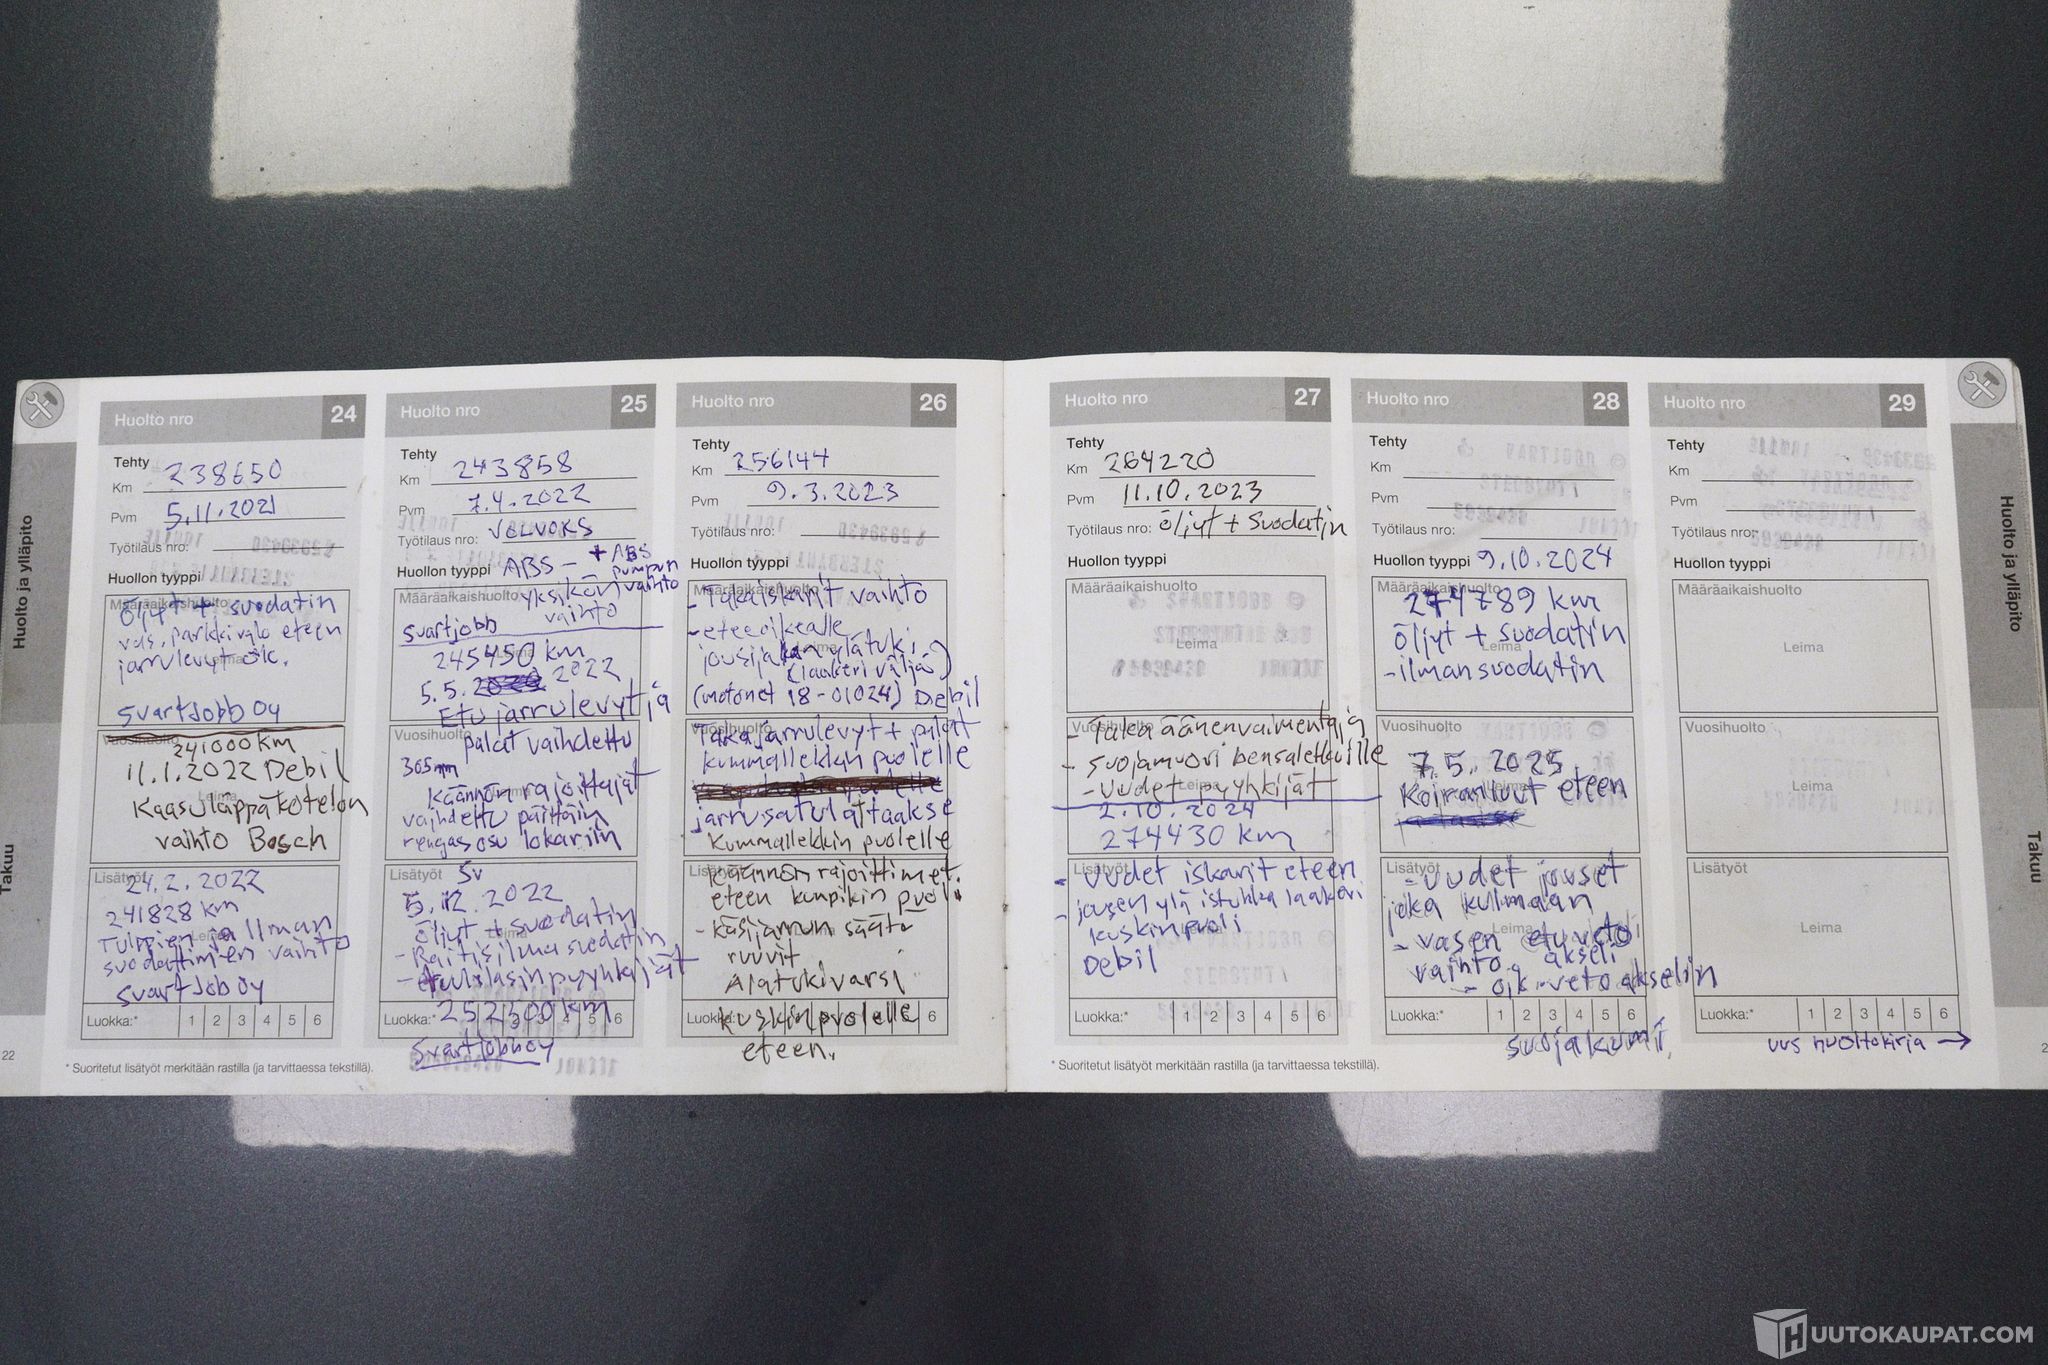 Huolto ja ylläpito
Takuu
22
Huolto nro 24
Tehty
Km 238650
Pvm 5.11.2021
Työtilaus nro:
Huollon tyyppi
Määräaikaishuolto
Öljyt + suodatin
vas. parkkivalo eteen
jarrulevyt ok.
Leima
SvartJobb Oy
Vuosihuolto
241000 km
11.1.2022 Debil
Kaasuläppäkotelon
Leima
vaihto Bosch
Lisätyöt
24.2.2022
241828 km
Tulppien ja Ilman
Leima
suodattimen vaihto
SvartJob oy
Luokka:* 1 2 3 4 5 6
Huolto nro 25
Tehty
Km 243858
Pvm 7.4.2022
Työtilaus nro: VOLVOKS
Huollon tyyppi ABS – + ABS
pumpun
yksikön vaihto
vaihto
Määräaikaishuolto
svartjobb
245450 km
5.5. 2022
Etujarrulevyt ja
Vuosihuolto
palat vaihdettu
305mm
Käännön rajoittajat
vaihdettu päittäin
rengas osu lokariin
Lisätyöt
5.12.2022
öljyt + suodatin
- Raitisilmasuodatin
- tuulilasinpyyhkijät
Luokka:* 1 2 3 4 5 6
252300 km
Svartjobb oy
Huolto nro 26
Tehty
Km 256144
Pvm 9.3.2023
Työtilaus nro:
Huollon tyyppi
Määräaikaishuolto
- Takaiskarit vaihto
- eteen oikealle
jousijalan ylätuki
(laakeri väljä)
(motonet 18-01024) Debil
Vuosihuolto
Takajarrulevyt + palat
kummallekkin puolelle
jarrusatulat taakse
kummallekkin puolelle
Lisätyöt
Käännön rajoittimet
eteen kumpikin puoli
- Käsijarrun säätö
ruuvit
Alatukivarsi
Luokka:* 6
kuskin puolelle
eteen.
* Suoritetut lisätyöt merkitään rastilla (ja tarvittaessa tekstillä).
Huolto nro 27
Tehty
Km 264220
Pvm 11.10.2023
Työtilaus nro: öljyt + suodatin
Huollon tyyppi
Määräaikaishuolto
Leima
Vuosihuolto
- Taka äänenvaimentaja
- suojamuovi bensaletkuille
Leima
- Uudet pyyhkijät
2.10.2024
274430 km
Lisätyöt
- Uudet iskarit eteen
- jousen ylä istukka laakeri
kuskinpuoli
Debil
Luokka:* 1 2 3 4 5 6
Huolto nro 28
Tehty
Km
Pvm
Työtilaus nro:
Huollon tyyppi 9.10.2024
Määräaikaishuolto
274789 km
öljyt + suodatin
Leima
- ilmansuodatin
Vuosihuolto
7.5.2025
Koiranluut eteen
Leima
Lisätyöt
- uudet jouset
joka kulmaan
- vasen etuveto
Leima
vaihto akseli
- oik. vetoakselin
Luokka:* 1 2 3 4 5 6
suojakumi
Huolto nro 29
Tehty
Km
Pvm
Työtilaus nro:
Huollon tyyppi
Määräaikaishuolto
Leima
Vuosihuolto
Leima
Lisätyöt
Leima
Luokka:* 1 2 3 4 5 6
uus huoltokirja →
* Suoritetut lisätyöt merkitään rastilla (ja tarvittaessa tekstillä).
Huolto ja ylläpito
Takuu
HUUTOKAUPAT.COM